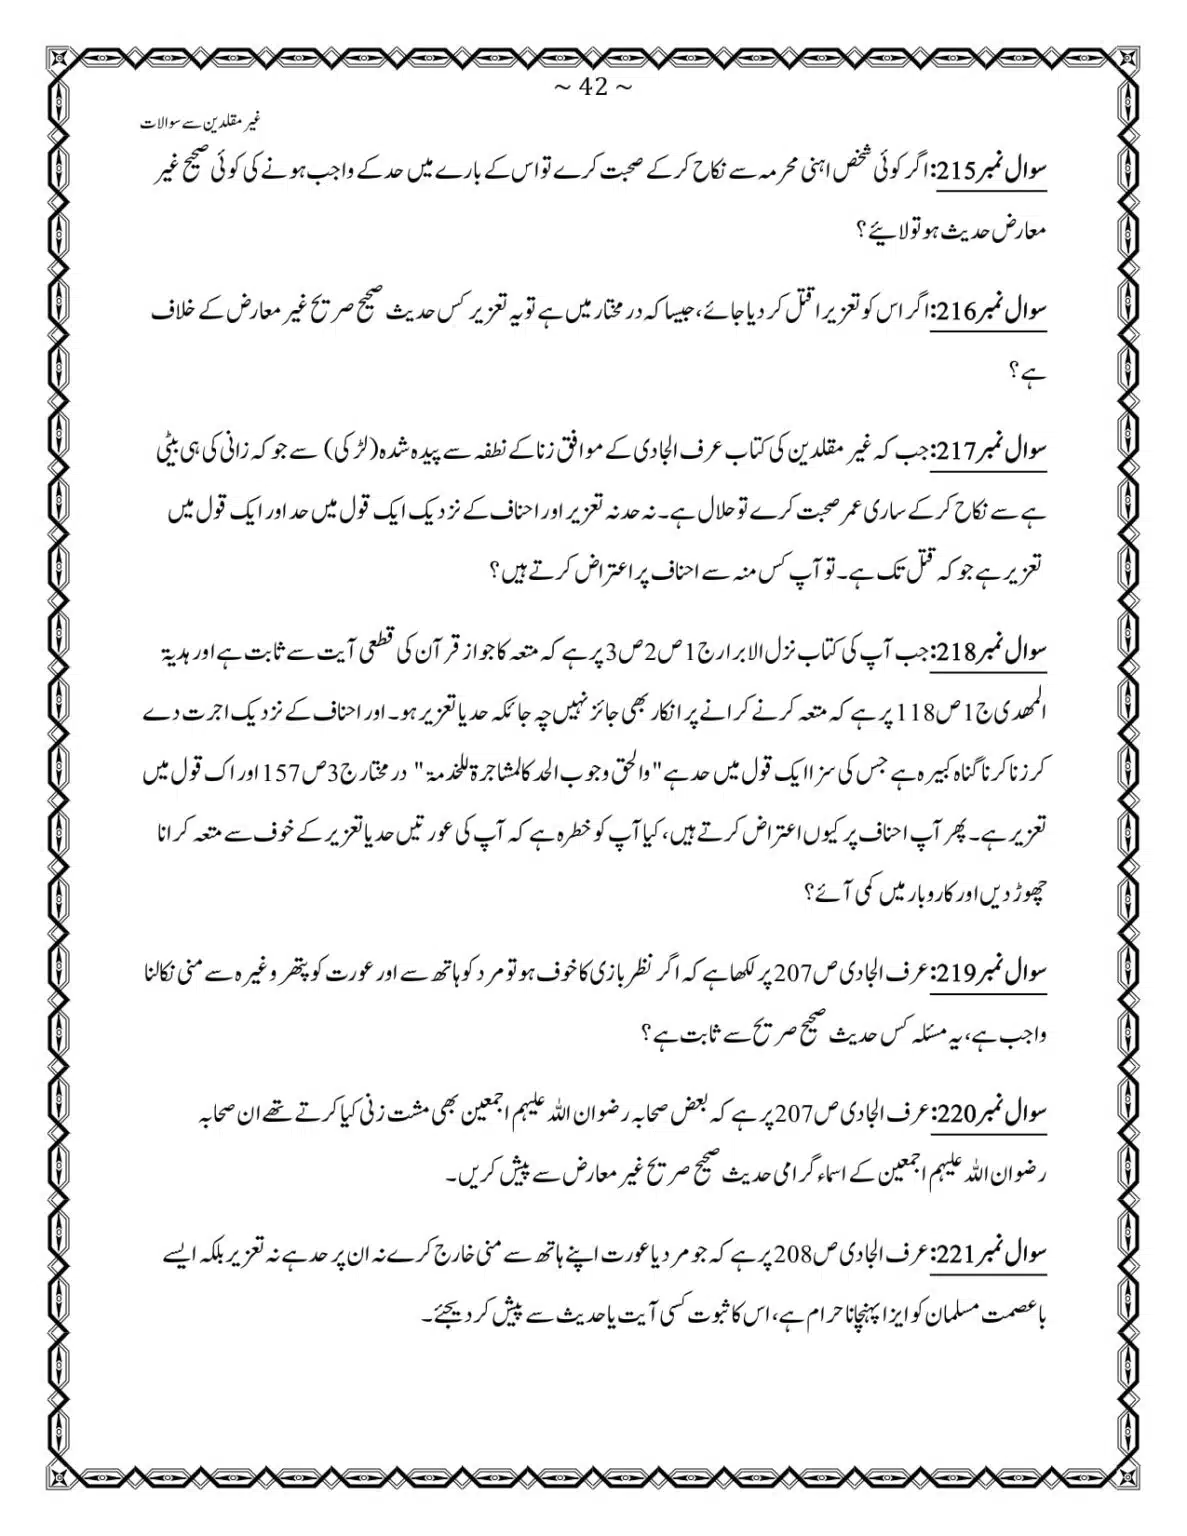 ~ 42 ~
غیر مقلدین سے سوالات
سوال نمبر215: اگر کوئی شخص اہنی محرمہ سے نکاح کر کے صحبت کرے تو اس کے بارے میں حد کے واجب ہونے کی کوئی صحیح غیر
معارض حدیث ہو تو لایئے؟
سوال نمبر216: اگر اس کو تعزیرا قتل کر دیا جائے، جیسا کہ در مختار میں ہے تو یہ تعزیر کس حدیث صحیح صریح غیر معارض کے خلاف
ہے؟
سوال نمبر217: جب کہ غیر مقلدین کی کتاب عرف الجادی کے موافق زنا کے نطفہ سے پیدہ شدہ (لڑکی) سے جو کہ زانی کی ہی بیٹی
ہے سے نکاح کر کے ساری عمر صحبت کرے تو حلال ہے۔ نہ حد نہ تعزیر اور احناف کے نزدیک ایک قول میں حد اور ایک قول میں
تعزیر ہے جو کہ قتل تک ہے۔ تو آپ کس منہ سے احناف پر اعتراض کرتے ہیں؟
سوال نمبر218: جب آپ کی کتاب نزل الابرار ج1 ص2 ص3 پر ہے کہ متعہ کا جواز قرآن کی قطعی آیت سے ثابت ہے اور ہدیۃ
المھدی ج1 ص118 پر ہے کہ متعہ کرنے کرانے پر انکار بھی جائز نہیں چہ جائکہ حد یا تعزیر ہو۔ اور احناف کے نزدیک اجرت دے
کر زنا کرنا گناہ کبیرہ ہے جس کی سزا ایک قول میں حد ہے "والحق وجوب الحد کالمشاجرۃ للخدمۃ" در مختار ج3 ص157 اور اک قول میں
تعزیر ہے۔ پھر آپ احناف پر کیوں اعتراض کرتے ہیں، کیا آپ کو خطرہ ہے کہ آپ کی عورتیں حد یا تعزیر کے خوف سے متعہ کرانا
چھوڑ دیں اور کاروبار میں کمی آئے؟
سوال نمبر219: عرف الجادی ص207 پر لکھا ہے کہ اگر نظر بازی کا خوف ہو تو مرد کو ہاتھ سے اور عورت کو پتھر وغیرہ سے منی نکالنا
واجب ہے، یہ مسئلہ کس حدیث صحیح صریح سے ثابت ہے؟
سوال نمبر220: عرف الجادی ص207 پر ہے کہ بعض صحابہ رضوان اللہ علیہم اجمعین بھی مشت زنی کیا کرتے تھے ان صحابہ
رضوان اللہ علیہم اجمعین کے اسماء گرامی حدیث صحیح صریح غیر معارض سے پیش کریں۔
سوال نمبر221: عرف الجادی ص208 پر ہے کہ جو مرد یا عورت اپنے ہاتھ سے منی خارج کرے نہ ان پر حد ہے نہ تعزیر بلکہ ایسے
باعصمت مسلمان کو ایزا پہنچانا حرام ہے، اس کا ثبوت کسی آیت یا حدیث سے پیش کر دیجئے۔